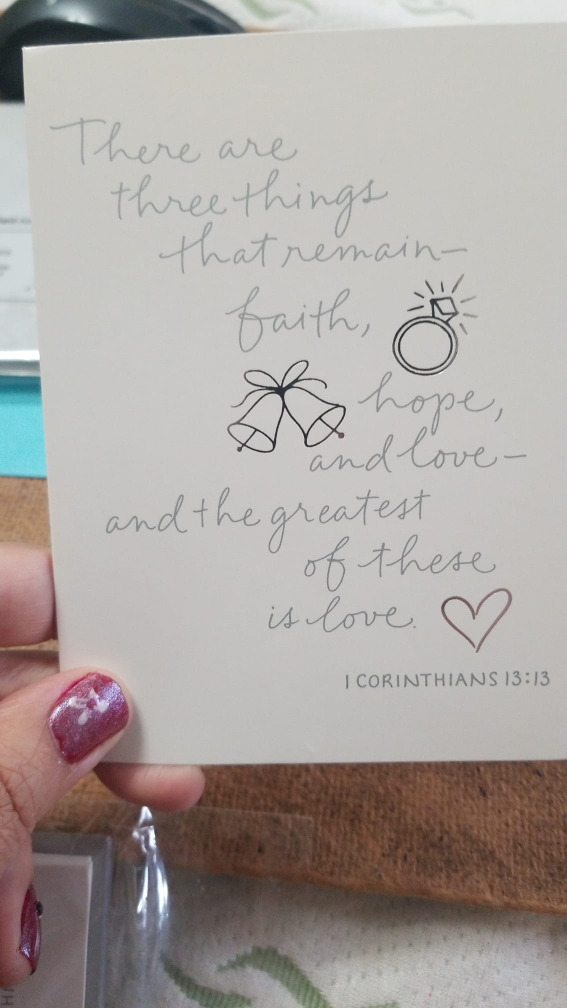 There are
three things
that remain—
faith,
hope,
and love—
and the greatest
of these
is love.
1 CORINTHIANS 13:13